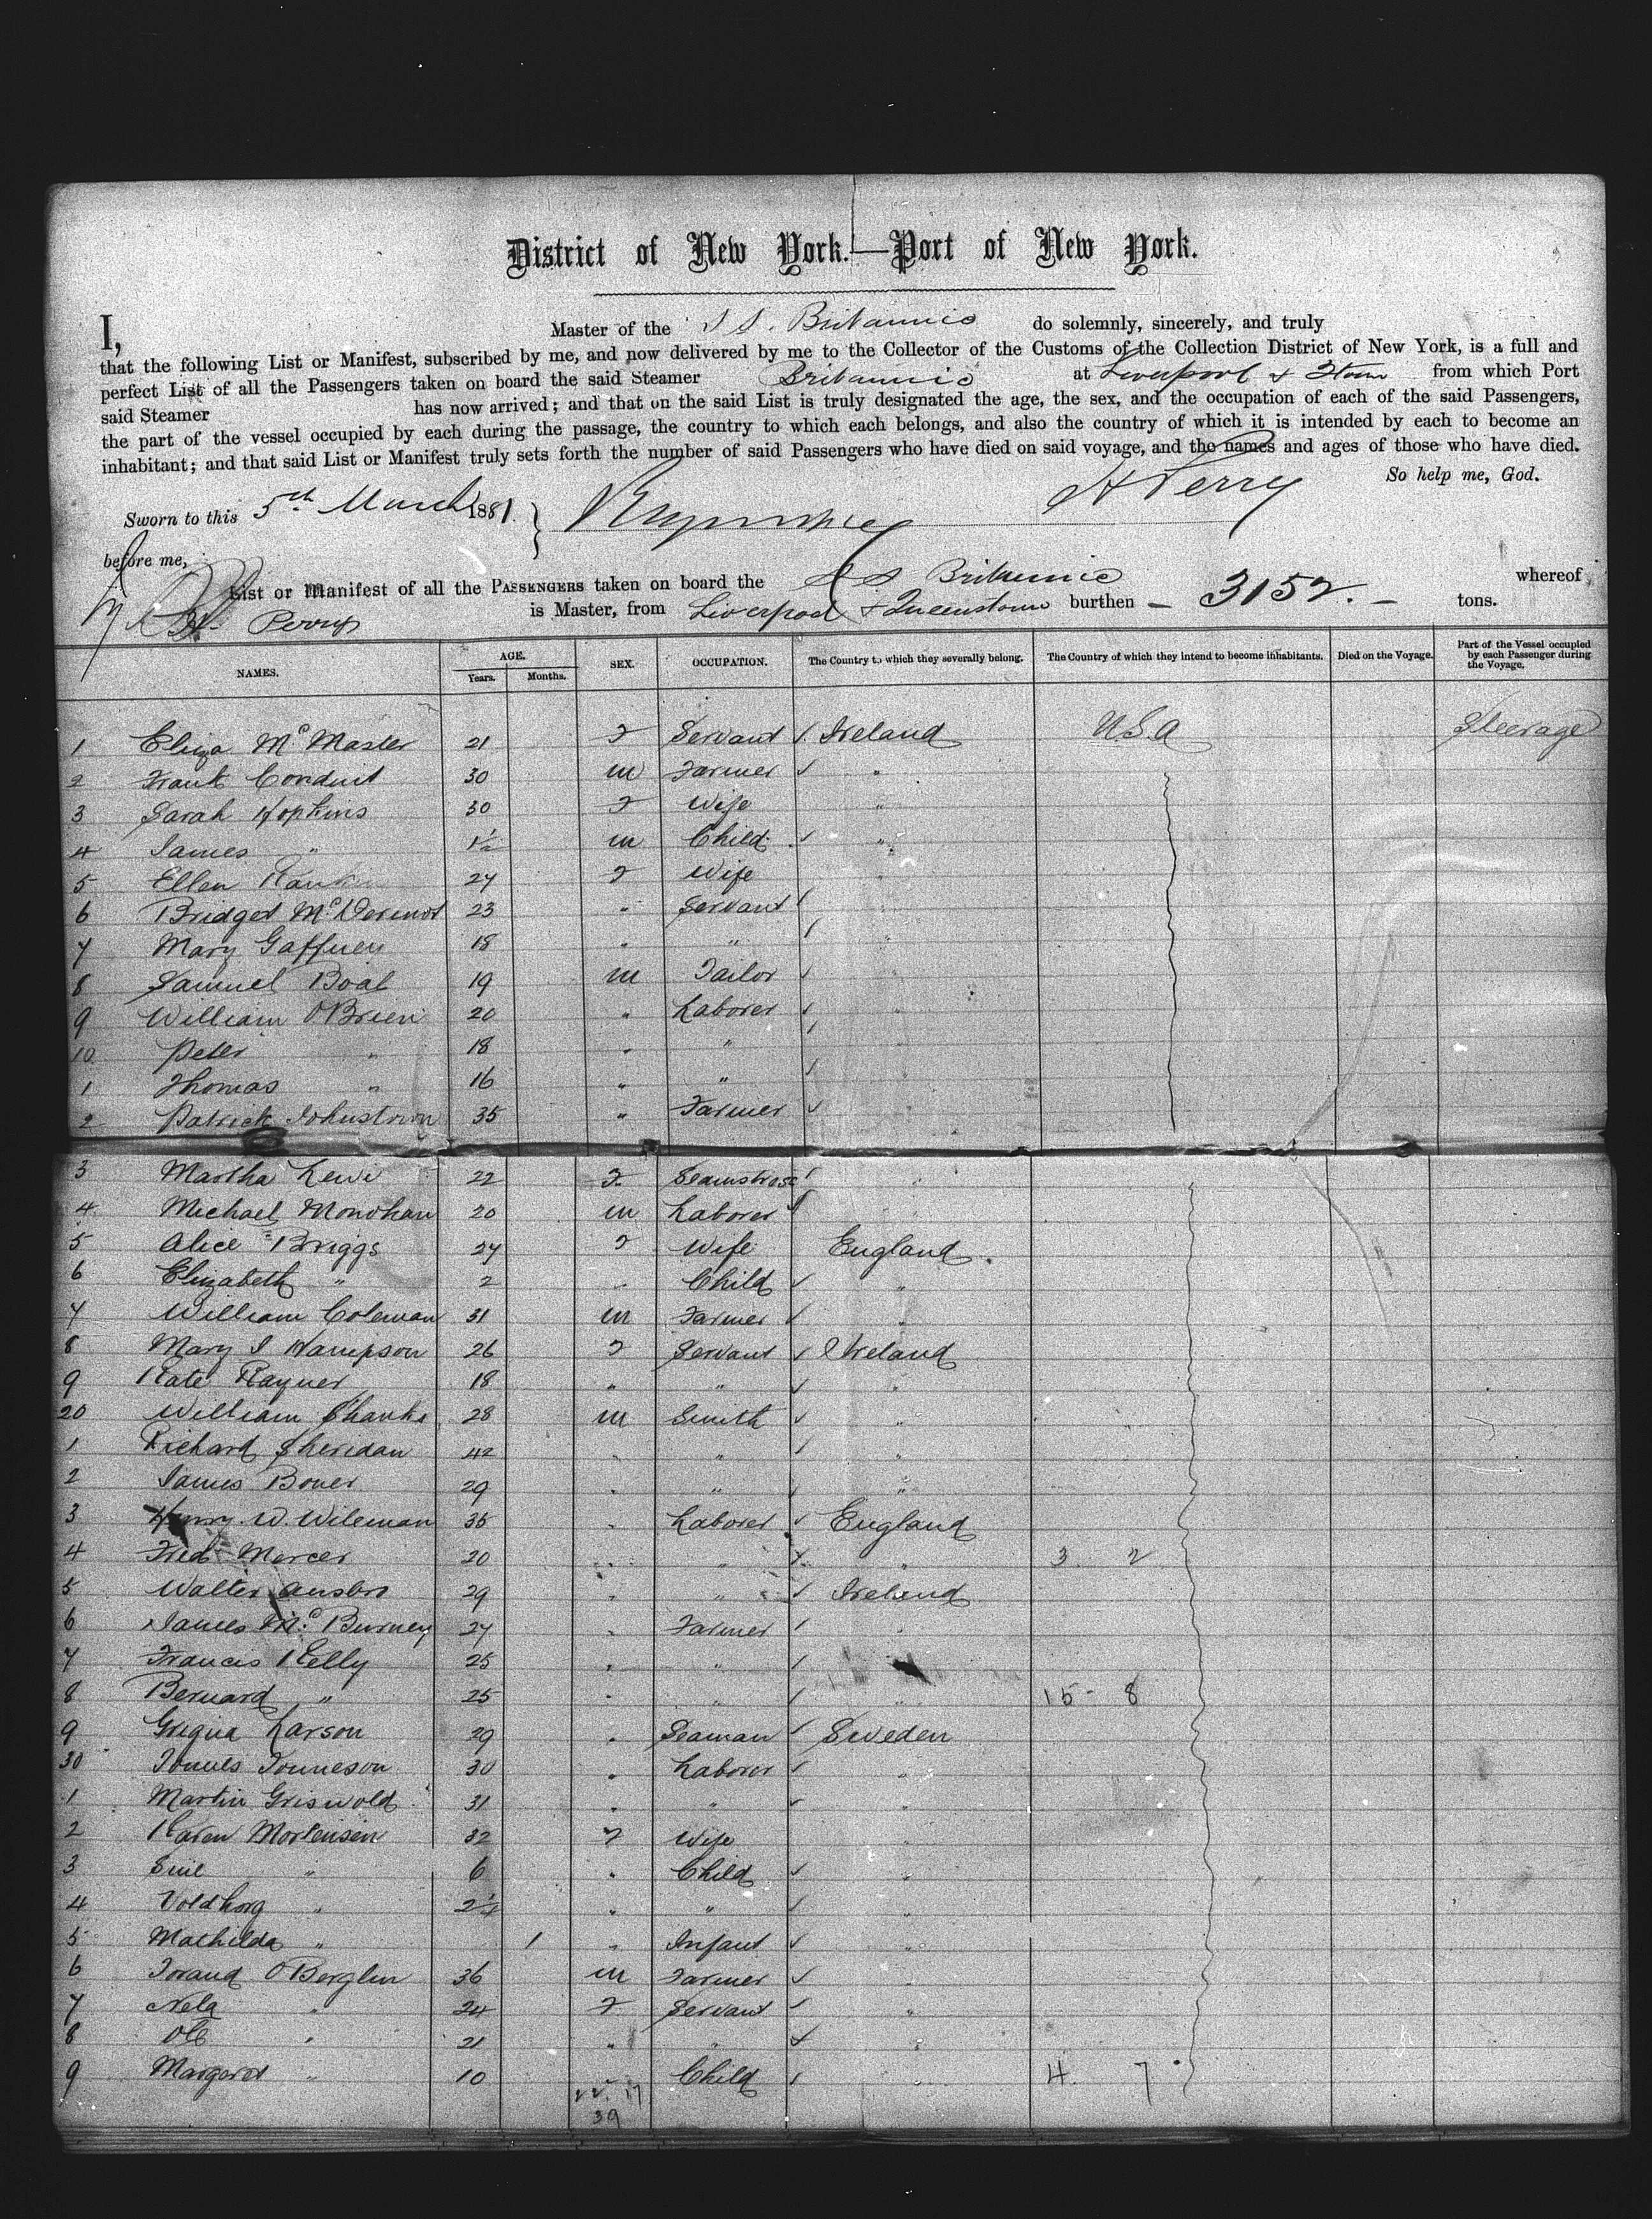 District of New York.—Port of New York.
I, Master of the S S. Britannic do solemnly, sincerely, and truly
that the following List or Manifest, subscribed by me, and now delivered by me to the Collector of the Customs of the Collection District of New York, is a full and
perfect List of all the Passengers taken on board the said Steamer Britannic at Liverpool & from which Port
said Steamer has now arrived; and that on the said List is truly designated the age, the sex, and the occupation of each of the said Passengers,
the part of the vessel occupied by each during the passage, the country to which each belongs, and also the country of which it is intended by each to become an
inhabitant; and that said List or Manifest truly sets forth the number of said Passengers who have died on said voyage, and the names and ages of those who have died.
So help me, God.
Sworn to this 5th March 1881. } H Perry
before me,
List or Manifest of all the PASSENGERS taken on board the S S Britannic whereof
H Perry is Master, from Liverpool & Queenstown burthen — 3152. — tons.
NAMES. AGE. Years. Months. SEX. OCCUPATION. The Country to which they severally belong. The Country of which they intend to become inhabitants. Died on the Voyage. Part of the Vessel occupied by each Passenger during the Voyage.
1 Eliza McMaster 21 F Servant Ireland U.S.A Steerage
2 Frank Conduit 30 M Farmer "
3 Sarah Hopkins 30 F Wife "
4 James " 1½ M Child "
5 Ellen 24 F Wife
6 Bridget McDermot 23 " Servant
7 Mary Gaffney 18 " " "
8 Samuel Boal 19 M Tailor "
9 William O'Brien 20 " Laborer "
10 Peter " 18 " "
1 Thomas " 16 " "
2 Patrick Johnstown 35 " Farmer
3 Martha Lewi 22 F Seamstress
4 Michael Monohan 20 M Laborer
5 Alice Briggs 27 F Wife England
6 Elizabeth " 2 " Child "
7 William Coleman 31 M Farmer "
8 Mary J Hampson 26 F Servant Ireland
9 Kate Rayner 18 " " "
20 William Shanks 28 M Smith "
1 Richard Sheridan 42 " " "
2 James Boner 29 " " "
3 Henry W. Wileman 35 " Laborer England
4 Fred Mercer 20 " " " 3 2
5 Walter 29 " " Ireland
6 James Mc Burney 27 " Farmer "
7 Francis Kelly 25 " "
8 Bernard " 25 " " " 15 - 8
9 Larson 29 " Seaman Sweden
30 30 " Laborer "
1 Martin Griswold 31 " " "
2 Karen Mortensen 32 F Wife "
3 " 6 " Child "
4 Voldborg " 2¼ " " "
5 Mathilda " 1 " Infant "
6 O'Berglin 36 M Farmer "
7 Nela " 24 F Servant "
8 Ole " 21 " " "
9 Margaret " 10 " Child " 4 7
22. 17
39